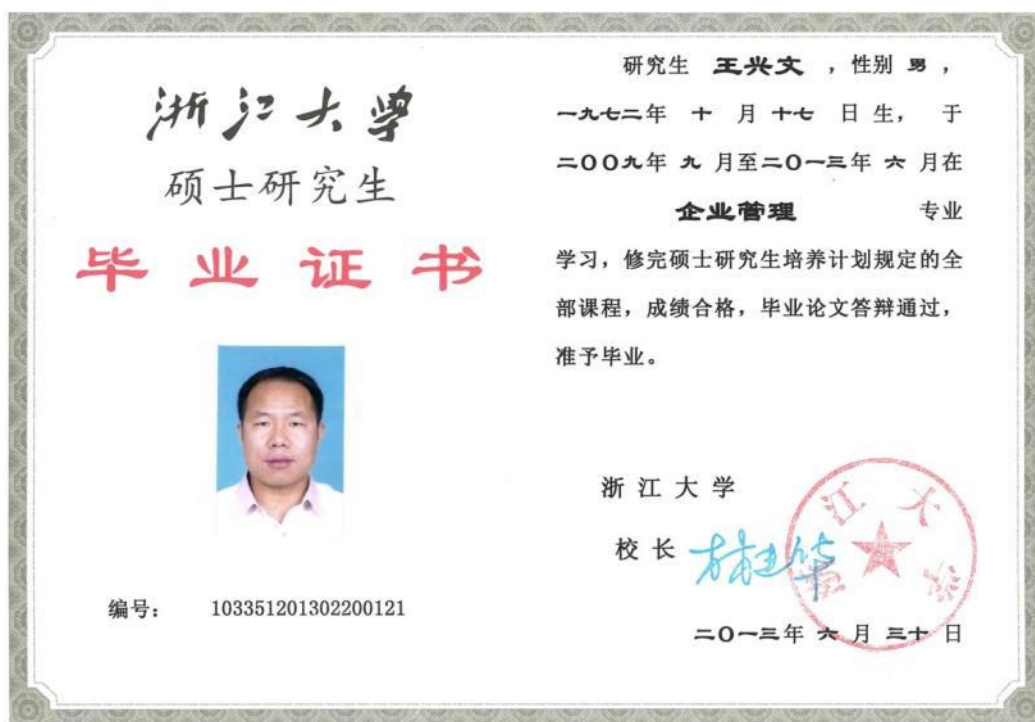 浙江大学
硕士研究生
毕业证书
编号： 103351201302200121
研究生 王兴文 ，性别 男 ，
一九七二年 十 月 十七 日 生， 于
二00九年 九 月至二0一三年 六 月在
企业管理 专业
学习，修完硕士研究生培养计划规定的全
部课程，成绩合格，毕业论文答辩通过，
准予毕业。
浙 江 大 学
校 长 林建华
浙江大学
二0一三年 六 月 三十 日